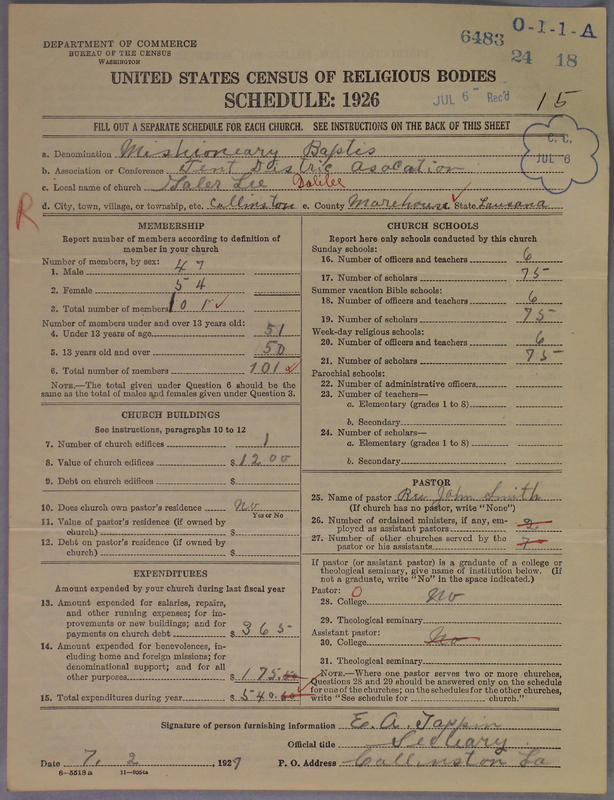 DEPARTMENT OF COMMERCE
BUREAU OF THE CENSUS
WASHINGTON
6483
O-1-1-A
24 18
UNITED STATES CENSUS OF RELIGIOUS BODIES
SCHEDULE: 1926
JUL 6 Rec'd
15
FILL OUT A SEPARATE SCHEDULE FOR EACH CHURCH. SEE INSTRUCTIONS ON THE BACK OF THIS SHEET
C. C.
JUL 6
a. Denomination Mishioneary Baptis
b. Association or Conference Tent Distric Asocation
c. Local name of church Galer Lee Dalilee
d. City, town, village, or township, etc. Collinston e. County Marehouse State Lausana
R
MEMBERSHIP
Report number of members according to definition of member in your church
Number of members, by sex:
1. Male 47
2. Female 54
3. Total number of members 101
Number of members under and over 13 years old:
4. Under 13 years of age 51
5. 13 years old and over 50
6. Total number of members 101
NOTE.—The total given under Question 6 should be the
same as the total of males and females given under Question 3.
CHURCH BUILDINGS
See instructions, paragraphs 10 to 12
7. Number of church edifices 1
8. Value of church edifices $1200
9. Debt on church edifices $
10. Does church own pastor's residence No
Yes or No
11. Value of pastor's residence (if owned by
church) $
12. Debt on pastor's residence (if owned by
church) $
EXPENDITURES
Amount expended by your church during last fiscal year
13. Amount expended for salaries, repairs,
and other running expenses; for im-
provements or new buildings; and for
payments on church debt $365
14. Amount expended for benevolences, in-
cluding home and foreign missions; for
denominational support; and for all
other purposes $175.00
15. Total expenditures during year $540.00
CHURCH SCHOOLS
Report here only schools conducted by this church
Sunday schools:
16. Number of officers and teachers 6
17. Number of scholars 75
Summer vacation Bible schools:
18. Number of officers and teachers 6
19. Number of scholars 75
Week-day religious schools:
20. Number of officers and teachers 6
21. Number of scholars 75
Parochial schools:
22. Number of administrative officers
23. Number of teachers—
a. Elementary (grades 1 to 8)
b. Secondary
24. Number of scholars—
a. Elementary (grades 1 to 8)
b. Secondary
PASTOR
25. Name of pastor Rev John Smith
(If church has no pastor, write "None")
26. Number of ordained ministers, if any, em-
ployed as assistant pastors 2
27. Number of other churches served by the
pastor or his assistants 7
If pastor (or assistant pastor) is a graduate of a college or
theological seminary, give name of institution below. (If
not a graduate, write "No" in the space indicated.)
Pastor: O
28. College No
29. Theological seminary
Assistant pastor:
30. College No
31. Theological seminary
NOTE.—Where one pastor serves two or more churches,
Questions 28 and 29 should be answered only on the schedule
for one of the churches; on the schedules for the other churches,
write "See schedule for church."
Signature of person furnishing information E. A. Tappin
Official title Secteary
Date 7. 2, 1927 P. O. Address Collinston La
8-5518a 11-9054a